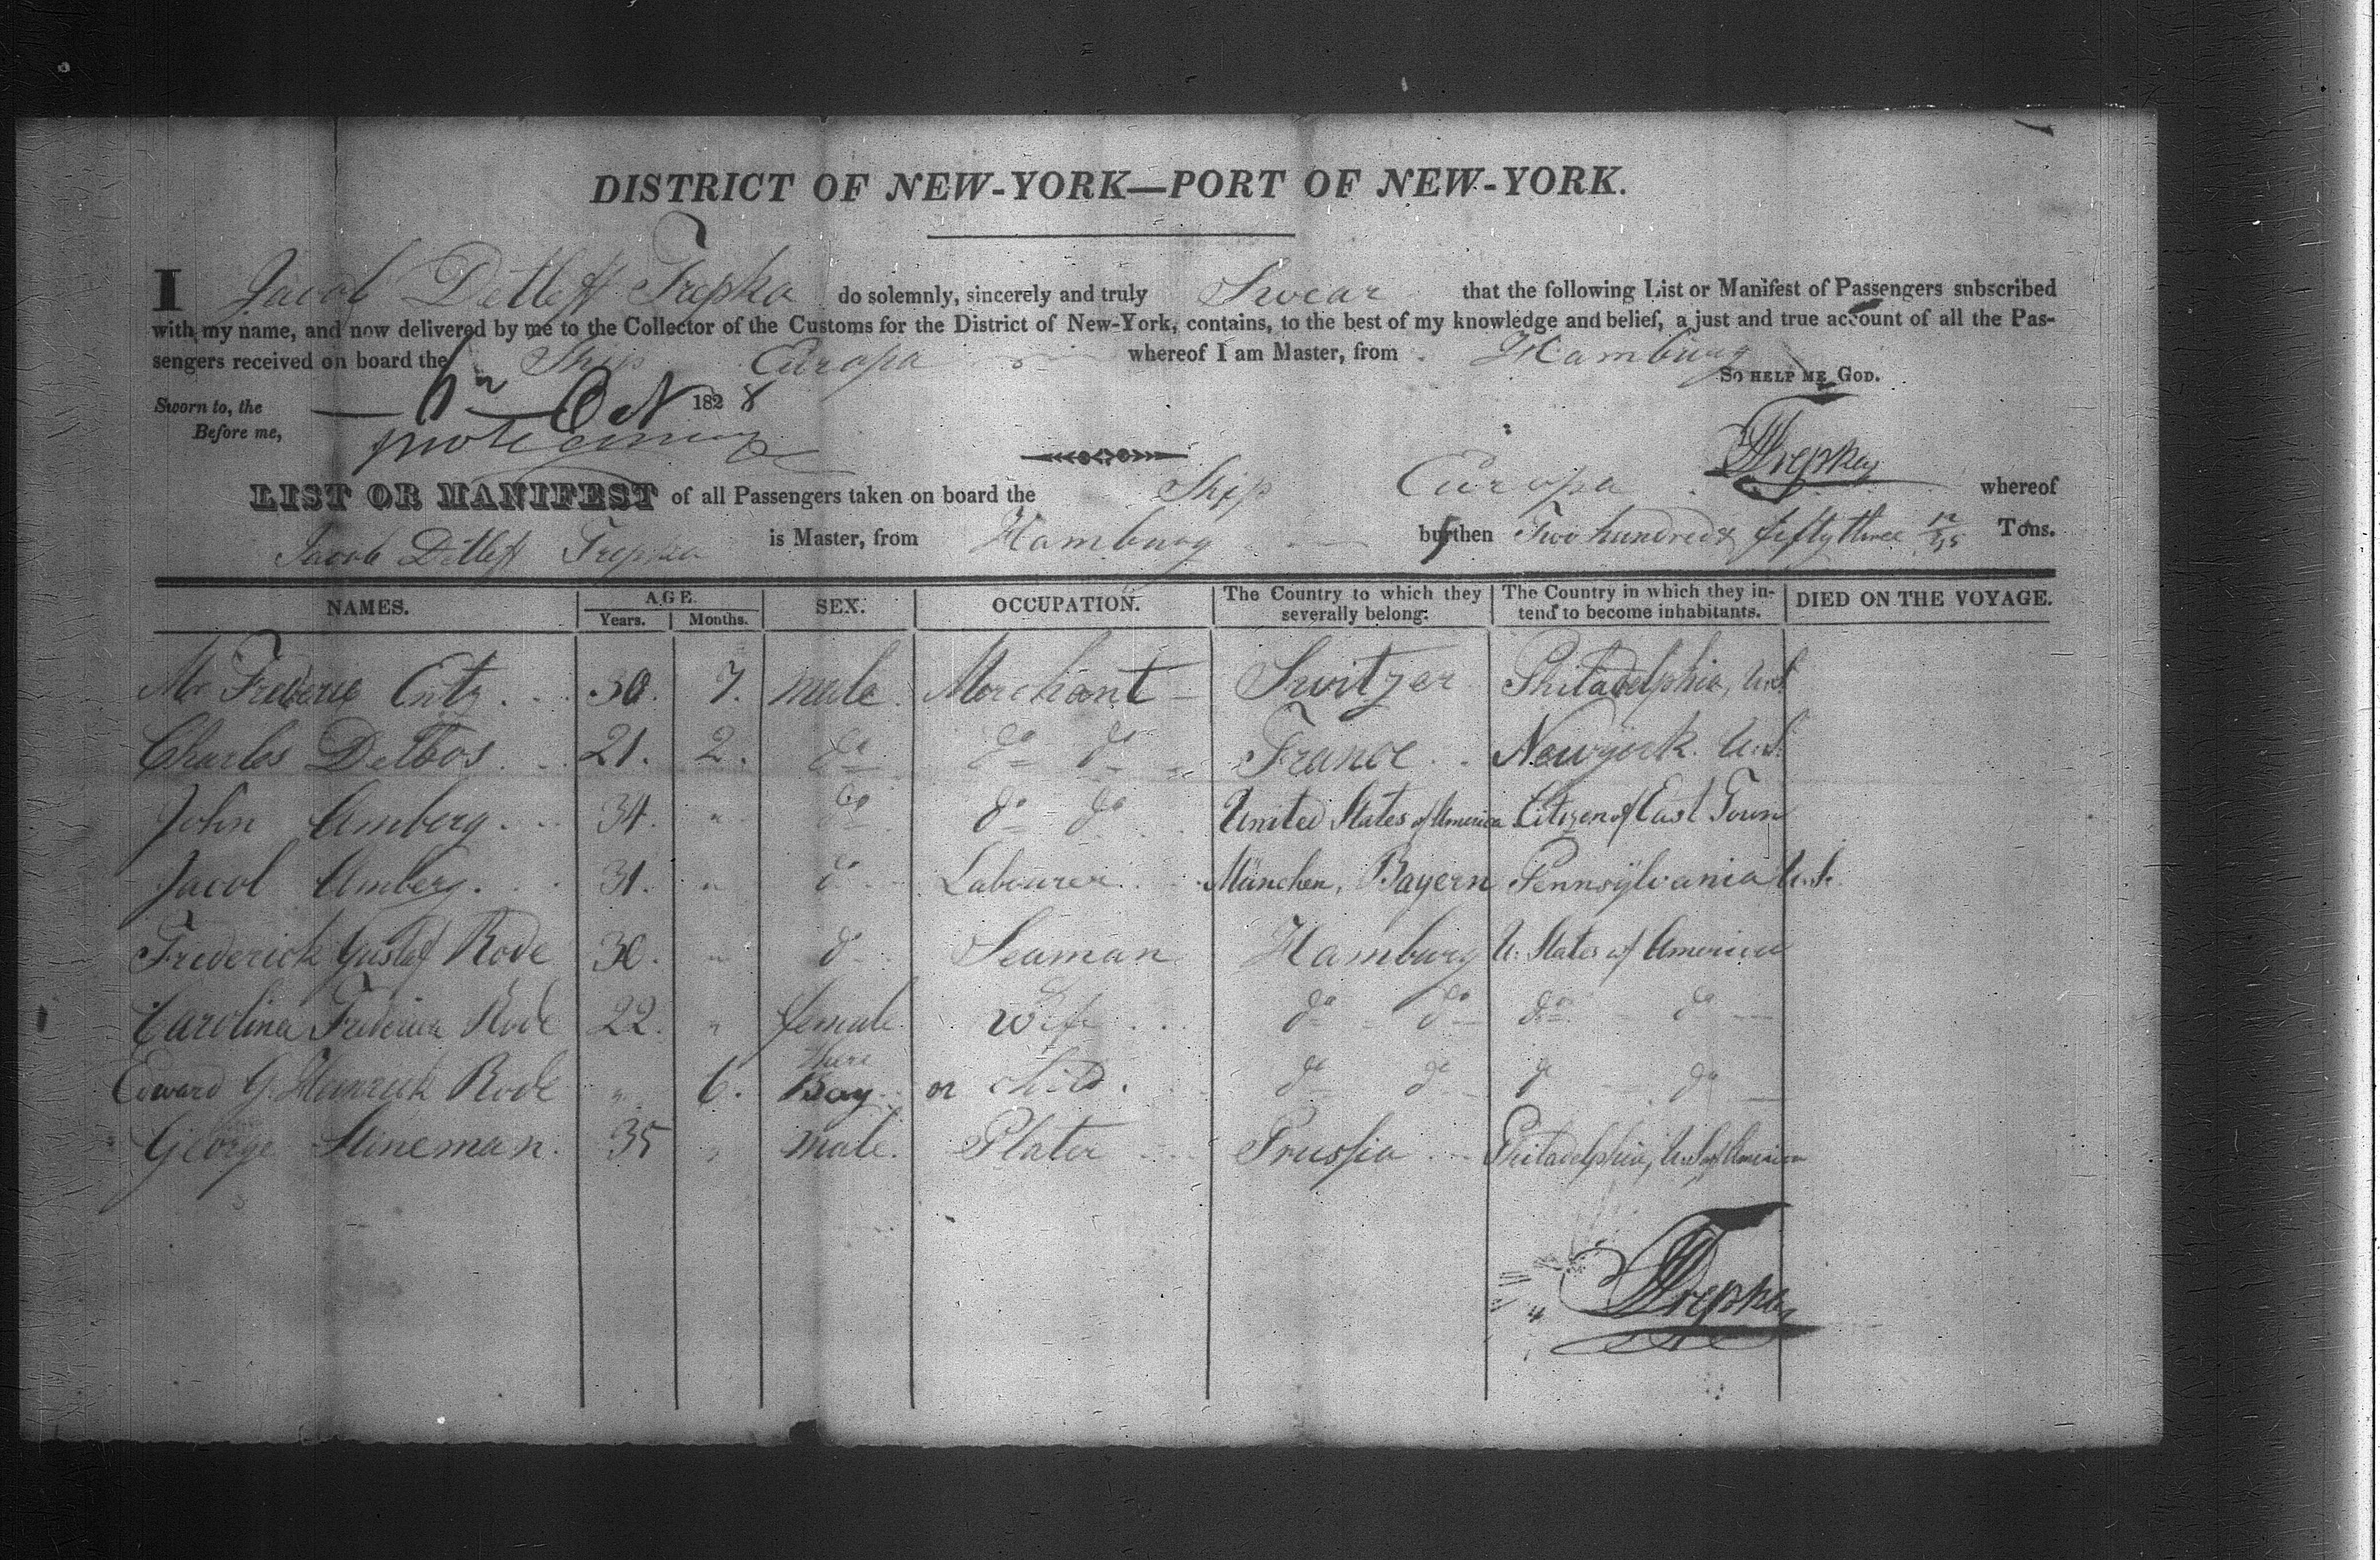 DISTRICT OF NEW-YORK—PORT OF NEW-YORK.
I Jacob Detleff Trepka do solemnly, sincerely and truly Swear that the following List or Manifest of Passengers subscribed
with my name, and now delivered by me to the Collector of the Customs for the District of New-York, contains, to the best of my knowledge and belief, a just and true account of all the Pas-
sengers received on board the Ship Europa whereof I am Master, from Hamburg
SO HELP ME GOD.
Sworn to, the 6 Oct 1828
Before me,
Trepka
LIST OR MANIFEST of all Passengers taken on board the Ship Europa whereof
Jacob Detleff Trepka is Master, from Hamburg burthen Two hundred & fifty three 12/95 Tons.
NAMES. AGE. SEX. OCCUPATION. The Country to which they severally belong. The Country in which they in-tend to become inhabitants. DIED ON THE VOYAGE.
Years. Months.
Mr Frederic Entz. 30. 7. male. Merchant Switzer Philadelphia, U.S
Charles Delbos. 21. 2. do do do France Newyork. U.S.
John Amberg. 34. " do do do United States of America Citizen of East Town
Jacob Amberg. 31. " do Labourer München, Bayern Pennsÿlvania U.S.
Frederick Gustaf Rode 30. " do Seaman Hamburg U. States of America
Carolina Frederica Rode 22. " female Wife do do do do
Edward G. Heinrich Rode " 6. there Boy or child. do do do do
George Stineman. 35 " male. Plater Prussia Philadelphia, U.S. of America
Trepka